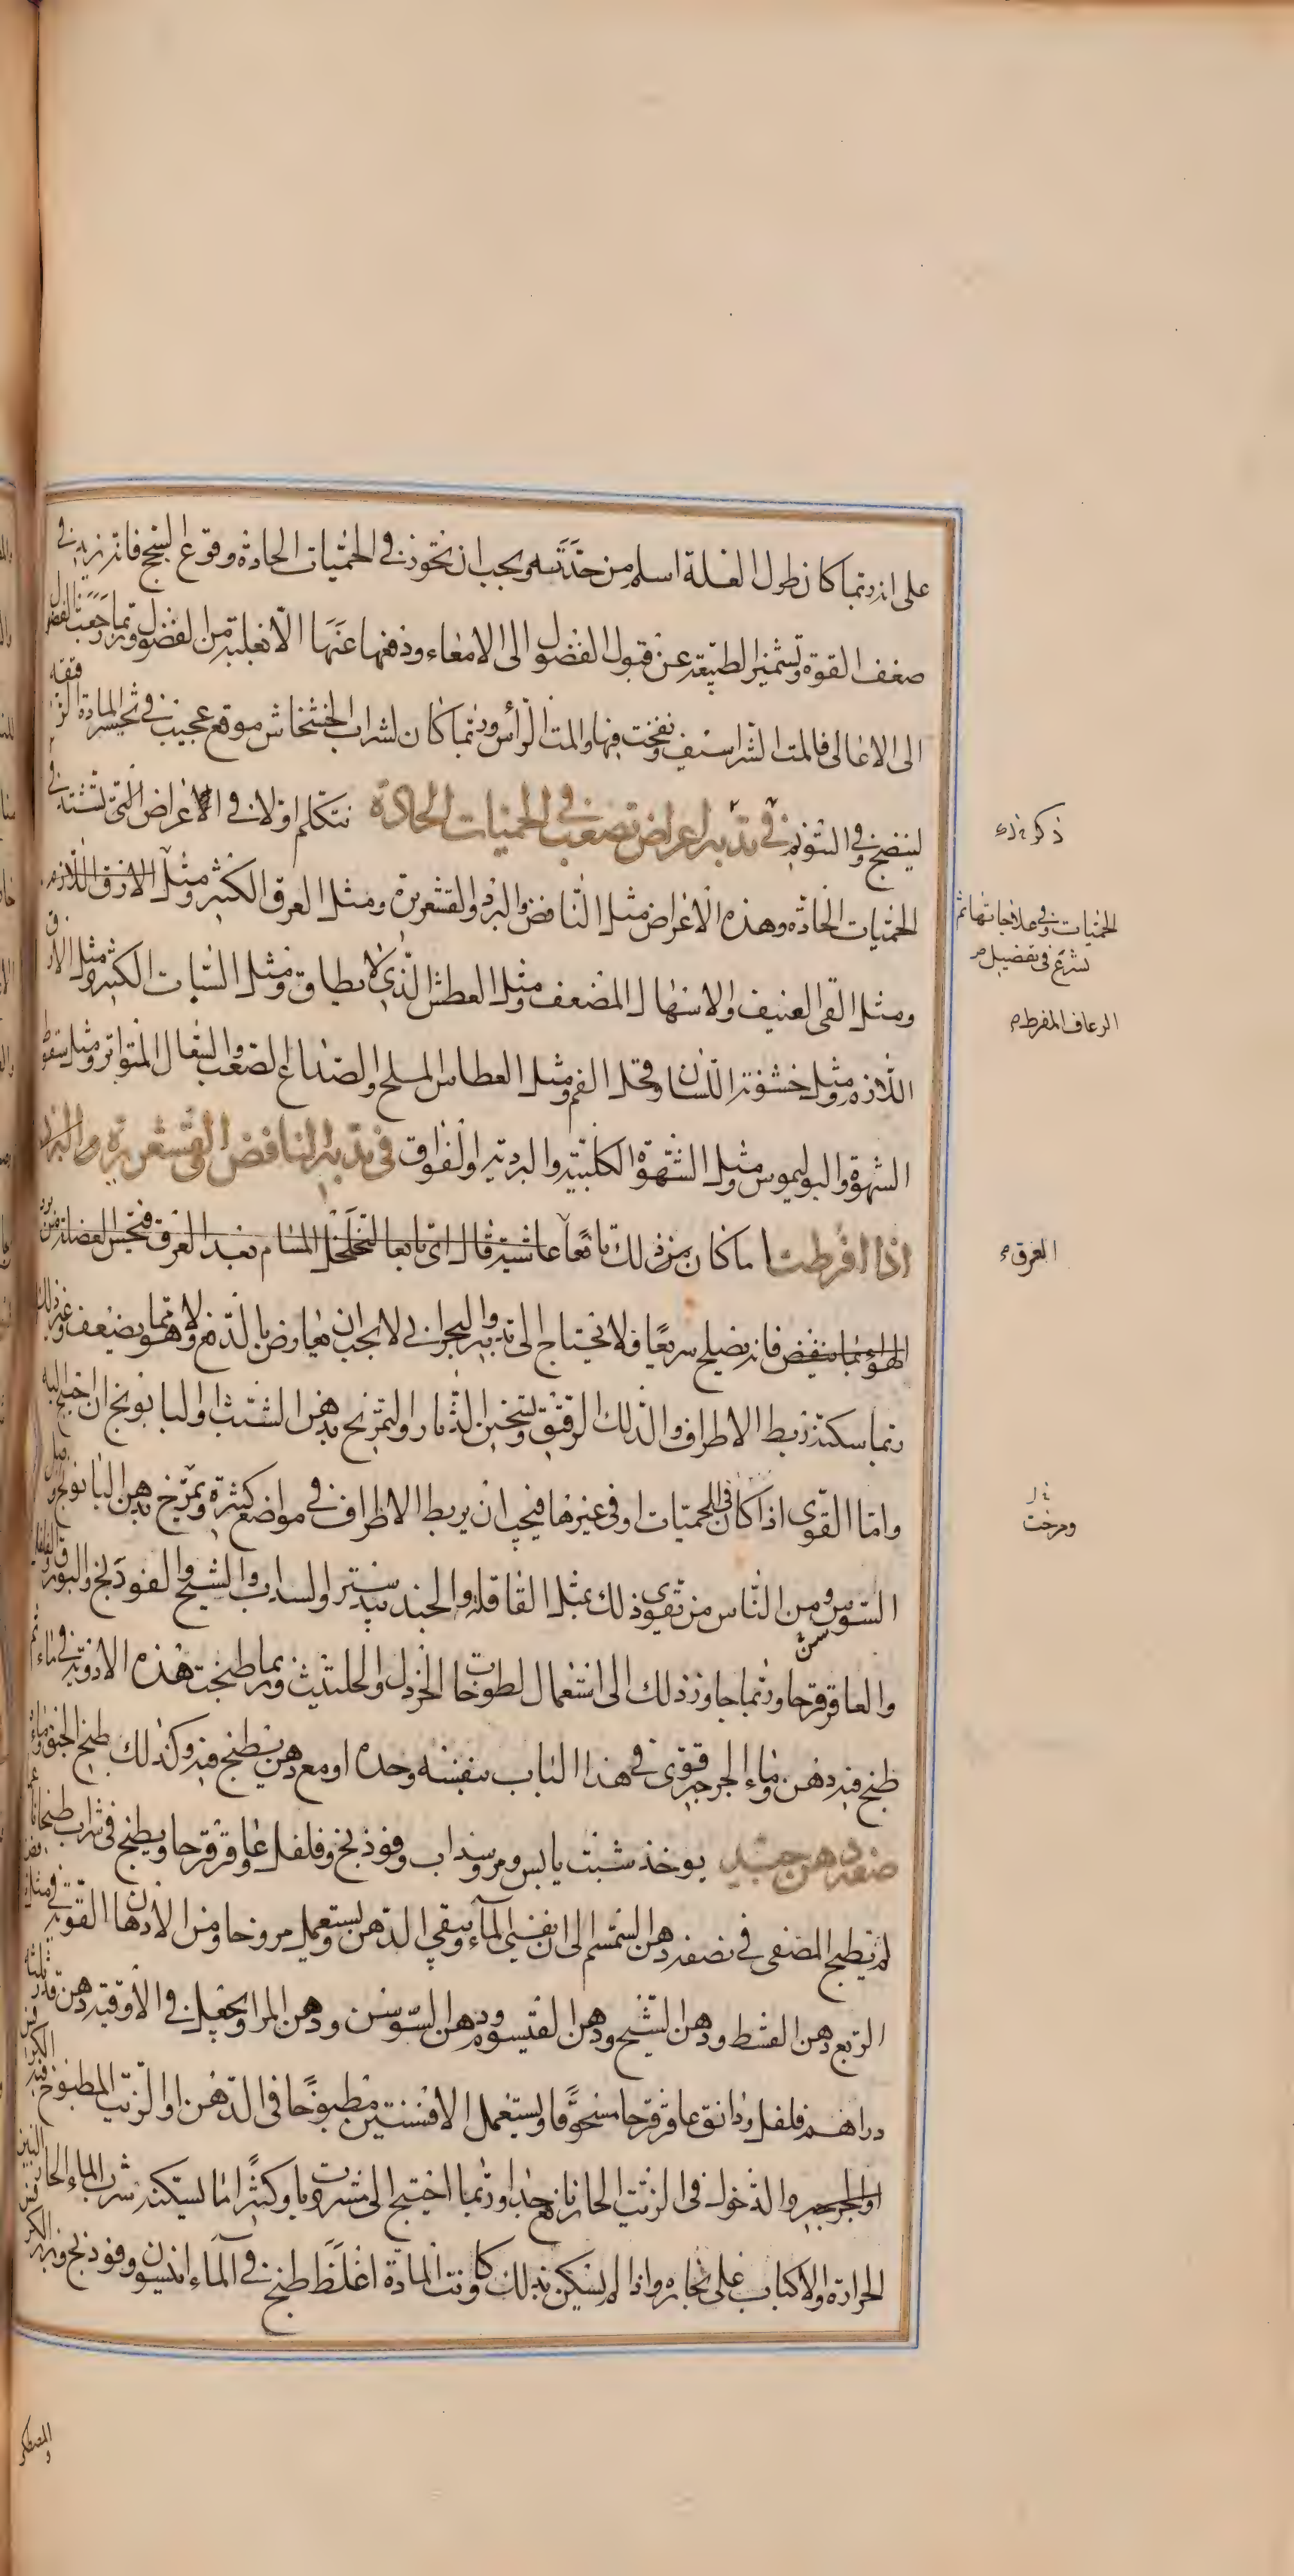 على انه ربما كان طول العلة اسلم من حدته ويجب ان تحوز في الحميات الحادة وقوع السحج فانه يزيد في
ضعف القوة وتشمئز الطبيعة عن قبول الفضول الى الامعاء ودفعها عنها الا تغلبه من الفضول وربما رجعت الفضول
الى الاعالي فالمت الشراسيف ونفخت فيها والمت الراس وربما كان لشراب الخشخاش موقع عجيب في تحسير المادة الرقيقة
لينضج وفي التنويم في تدبير اعراض تصعب في الحميات الحادة نتكلم اولا في الاعراض التي تشتد في
الحميات الحادة وهذه الاعراض مثل النافض والبرد والقشعريرة ومثل العرق الكثير ومثل الارق اللازم
ومثل القي العنيف والاسهال المضعف ومثل العطش الذي لا يطاق ومثل السبات الكثير ومثل الارق
اللازم ومثل خشونة اللسان وقحل الفم ومثل العطاس الملح والصداع الصعب والسعال المتواتر ومثل سقوط
الشهوة والبوليموس ومثل الشهوة الكلبية والبردية والفواق في تدبير النافض القشعريرة والبرد
اذا افرطت ما كان من ذلك تابعا عاشية قال اي تابعا لتخلخل المسام بعد العرق فتحبس الفضلة من برد
الهواء بما ينفض فانه يصلح سريعا فلا تحتاج الى تدبير والبحراني لا يجب ان يعارض بالدفع ولا هو مما يضعف وغير ذلك
ربما سكنه ربط الاطراف والدلك الرقيق وتسخين الدثار والتمريخ بدهن الشبث او البابونج ان احتيج اليه
واما القوى اذا كان في الحميات او في غيرها فيجب ان يربط الاطراف في مواضع كثيرة وتمرخ بدهن البابونج ودهن
السوسن ومن الناس من تقوى ذلك بمثل القاقلة والجندبيدستر والسداب والشيح والفوذنج والبورق والفلفل
والعاقرقرحا وربما جاوز ذلك الى استعمال لطوخات الخردل والحلتيث وربما طبخت هذه الادوية في ماء ثم
طبخ فيه دهن وماء الجرجير قوى في هذا الباب بنفسه وحده او مع دهن يطبخ فيه وكذلك طبخ الحبق وماء
صفة دهن جيد يوخذ شبث يابس ومر وسداب وفوذنج وفلفل وعاقرقرحا ويطبخ في شراب طبخا ناعما
ثم يطبخ المصفى في نصفه دهن السمسم الى ان يفنى الماء ويبقى الدهن ويستعمل مروخا ومن الادهان القوية في مثل
الربع دهن القسط ودهن الشيح ودهن القيسوم ودهن السوسن ودهن المر ويجعل في الاوقية دهن قدر ثلثة
دراهم فلفل ودانق عاقرقرحا مسحوقا ويستعمل الافسنتين مطبوخا في الدهن او الزيت المطبوخ فيه الكرفس
او الجرجير والدخول في الزيت الحار نافع جدا وربما احتيج الى مشروبات وكثيرا ما يسكنه شرب الماء الحار البين
الحرارة والاكباب على بخاره واذا لم يسكن بذلك وكانت المادة اغلظ طبخ في الماء انيسون وفوذنج وبزر الكرفس
والمصطكى
ذكر ذلك
الحميات وفي علاجاتها ثم
نشرع في تفصيل
الرعاف المفرط
العرق
ومرخت